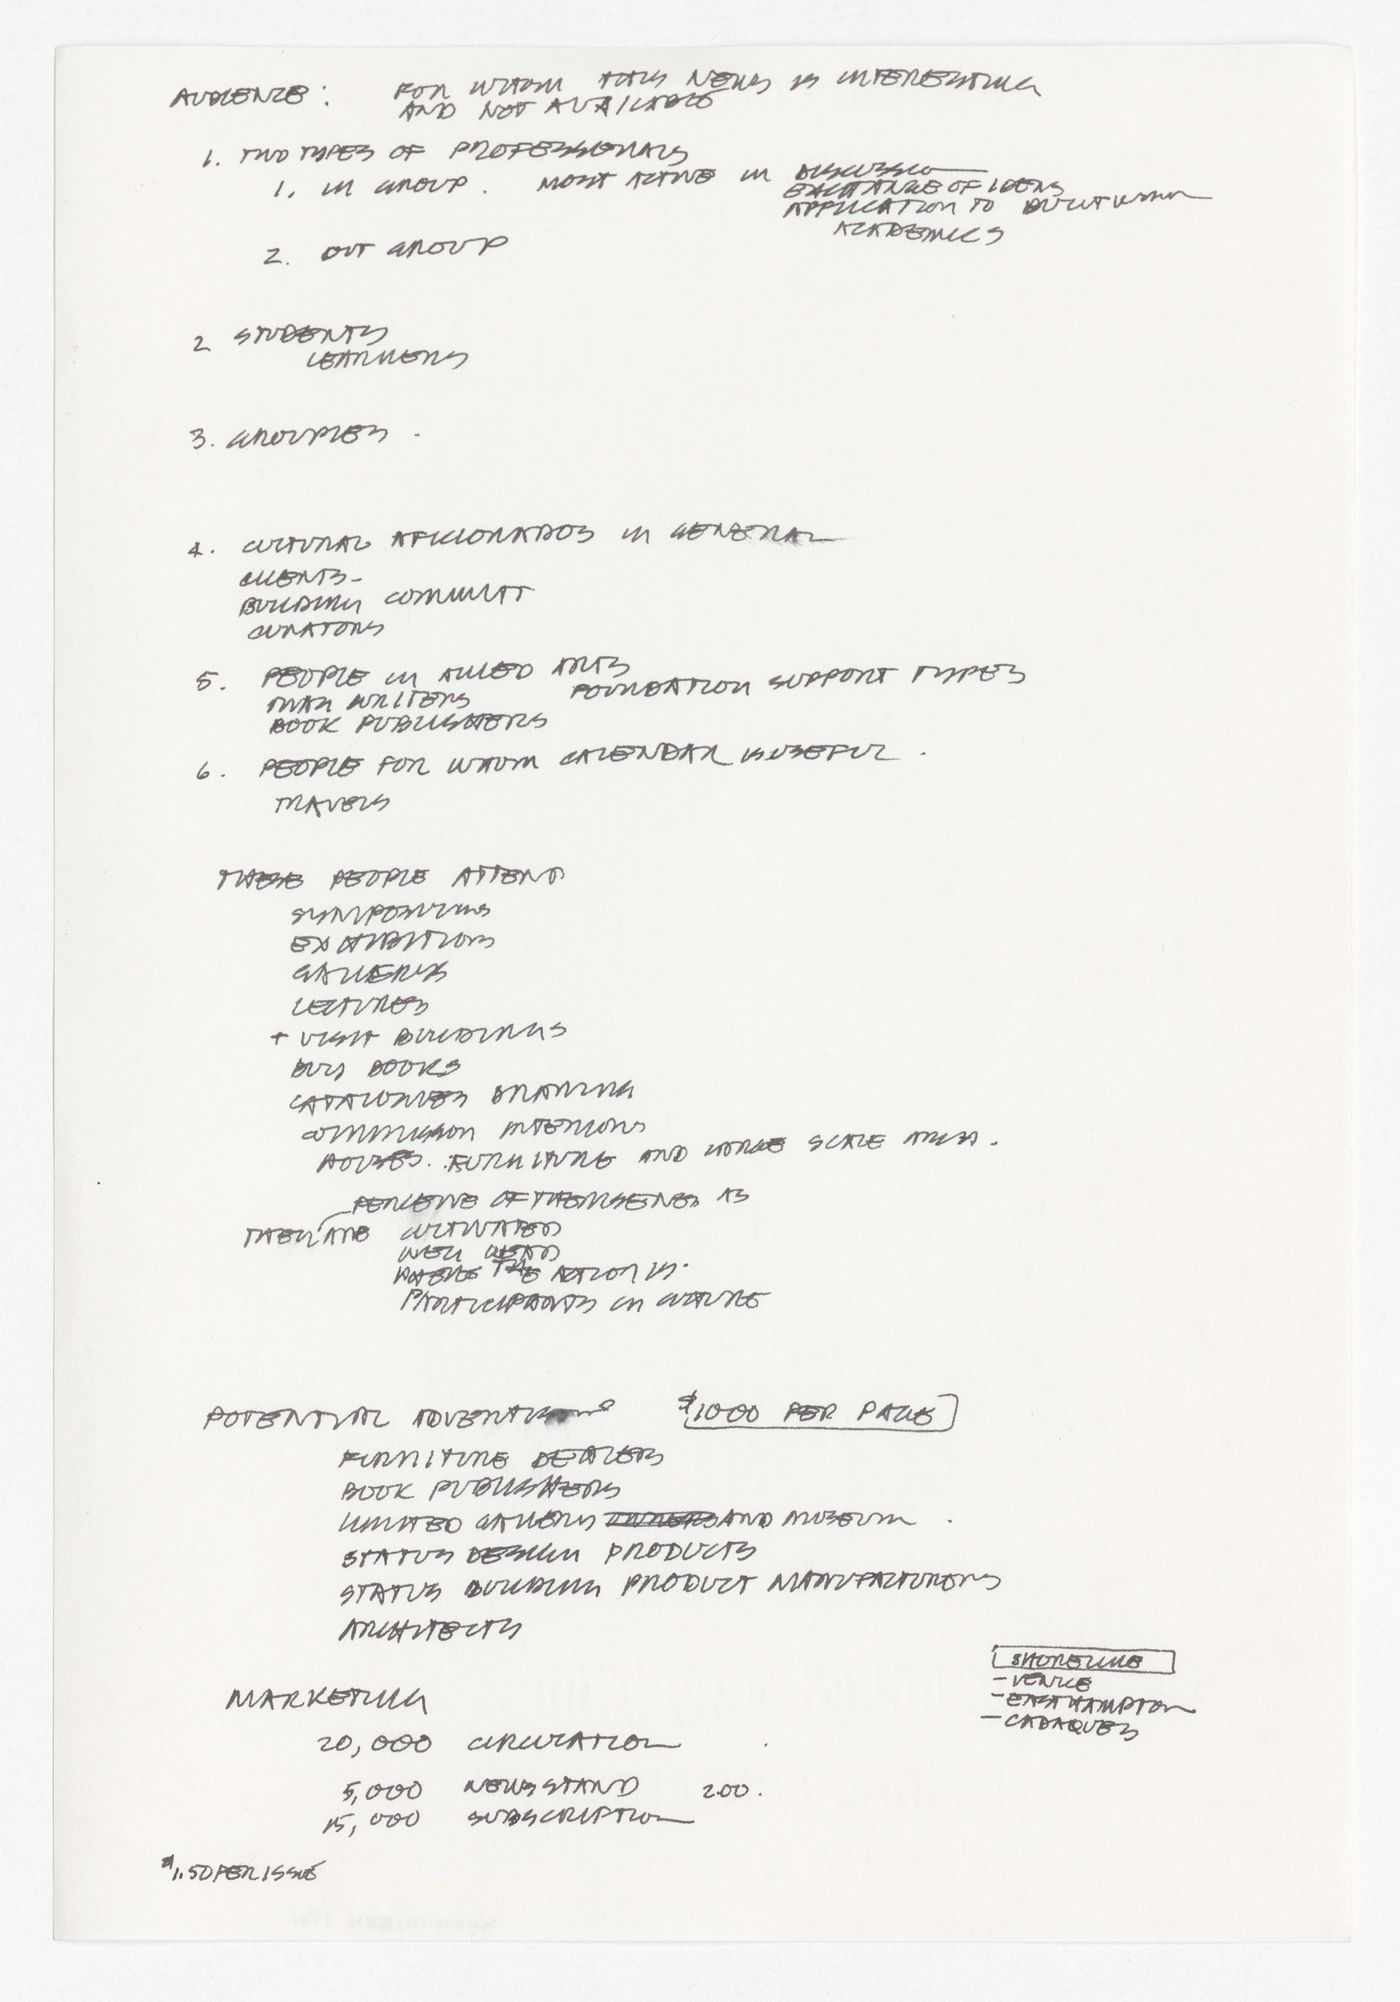 AUDIENCE: FOR WHOM THIS NEWS IS INTERESTING
AND NOT AVAILABLE
1. TWO TYPES OF PROFESSIONALS
1. IN GROUP. MOST ACTIVE IN DISCUSSION
EXCHANGE OF IDEAS
APPLICATION TO BUILT WORK
ACADEMICS
2. OUT GROUP
2 STUDENTS
LEARNERS
3. GROUPIES.
4. CULTURAL AFICIONADOS IN GENERAL
CLIENTS-
BUILDING COMMITT
CURATORS
5. PEOPLE IN ALLIED ARTS
WRITERS FOUNDATION SUPPORT TYPES
BOOK PUBLISHERS
6. PEOPLE FOR WHOM CALENDAR IS USEFUL.
TRAVELS
THESE PEOPLE ATTEND
SYMPOSIUMS
EXHIBITIONS
GALLERIES
LECTURES
+ VISIT BUILDINGS
BUY BOOKS
CATALOGUES DRAWING
COMMISSION INTERIORS
HOUSES. FURNITURE AND LARGE SCALE ARCH.
PERCEIVE OF THEMSELVES AS
THEY ARE CULTIVATED
WELL READ
WHERE THE ACTION IS.
PARTICIPANTS IN CULTURE
POTENTIAL $1000 PER PAGE
FURNITURE DEALERS
BOOK PUBLISHERS
LIMITED GALLERIES AND MUSEUM.
STATUS DESIGN PRODUCTS
STATUS BUILDING PRODUCT MANUFACTURERS
ARCHITECTS
SHORELINE
-VENICE
-EASTHAMPTON
-CADAQUES
MARKETING
20,000 CIRCULATION
5,000 NEWSSTAND 2.00.
15,000 SUBSCRIPTION
$1.50 PER ISSUE